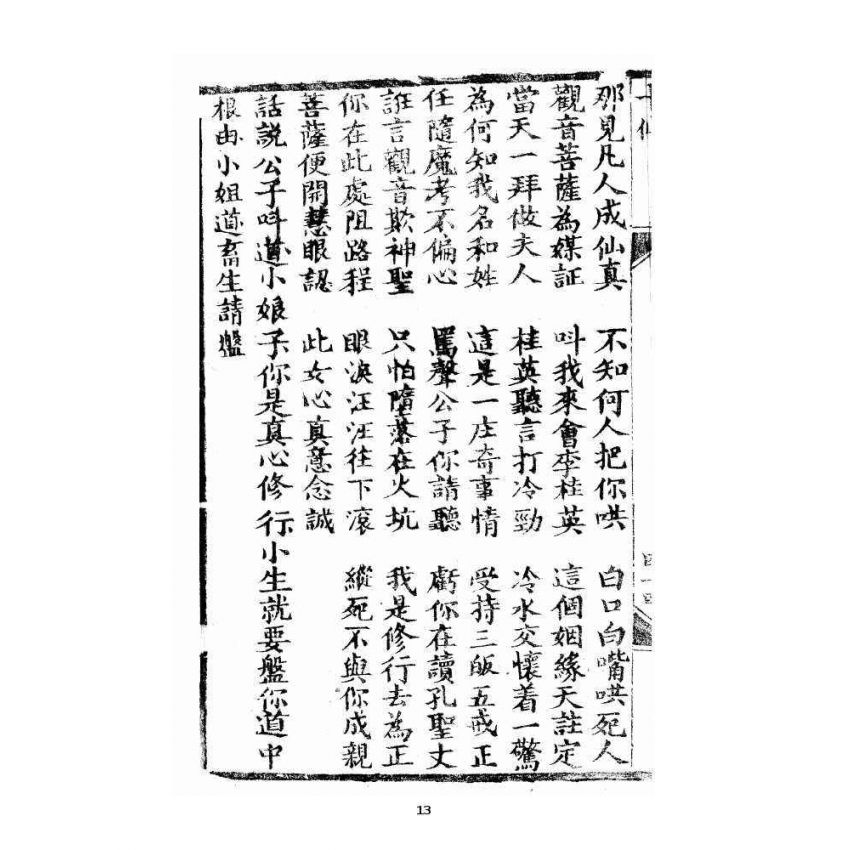 那見凡人成仙真　不知何人把你哄　白口白嘴哄死人
觀音菩薩為媒証　叫我來會李桂英　這個姻緣天註定
當天一拜做夫人　桂英聽言打冷勁　冷水交懷着一驚
為何知我名和姓　這是一庄奇事情　受持三皈五戒正
任隨魔考不偏心　罵聲公子你請聽　虧你在讀孔聖文
誑言觀音欺神聖　只怕墮落在火坑　我是修行去為正
你在此處阻路程　眼淚汪汪往下滾　縱死不與你成親
菩薩便開慧眼認　此女心真意念誠
話説公子呌道小娘子你是真心修行小生就要盤你道中
根由小姐道畜生請盤
13